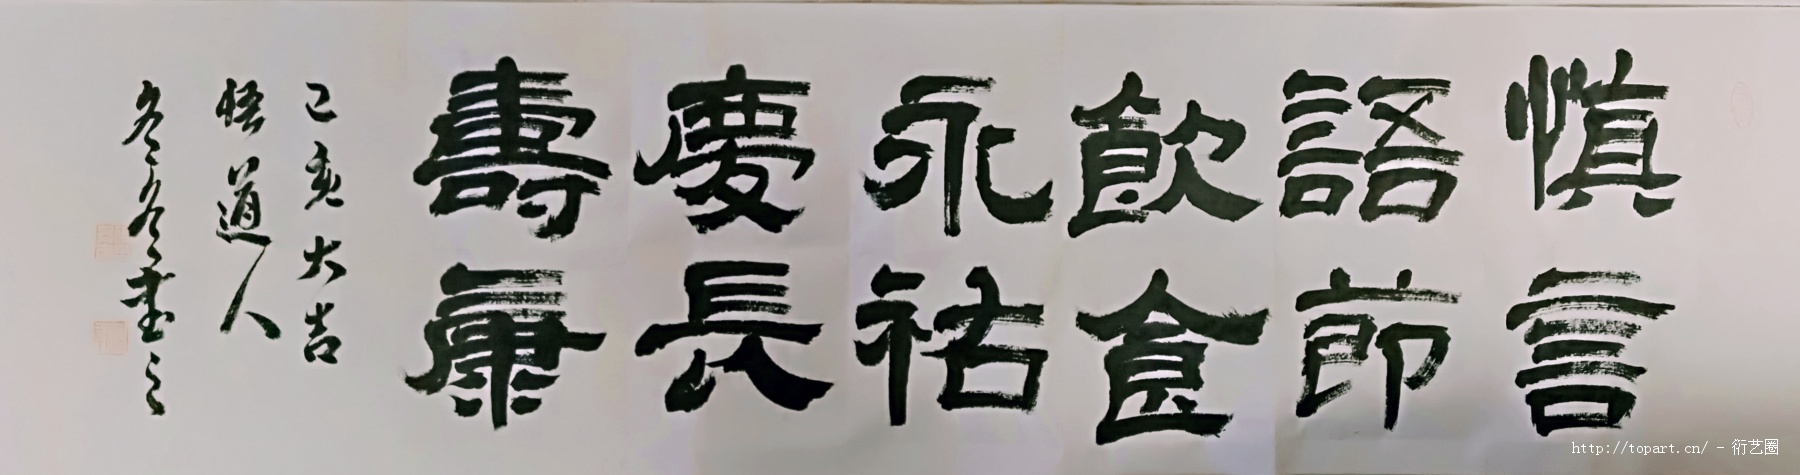 慎言
語節
飲食
永祐
慶長
壽康
己亥大吉
悟道人
冬冬書之
http://topart.cn/ - 衍艺圈